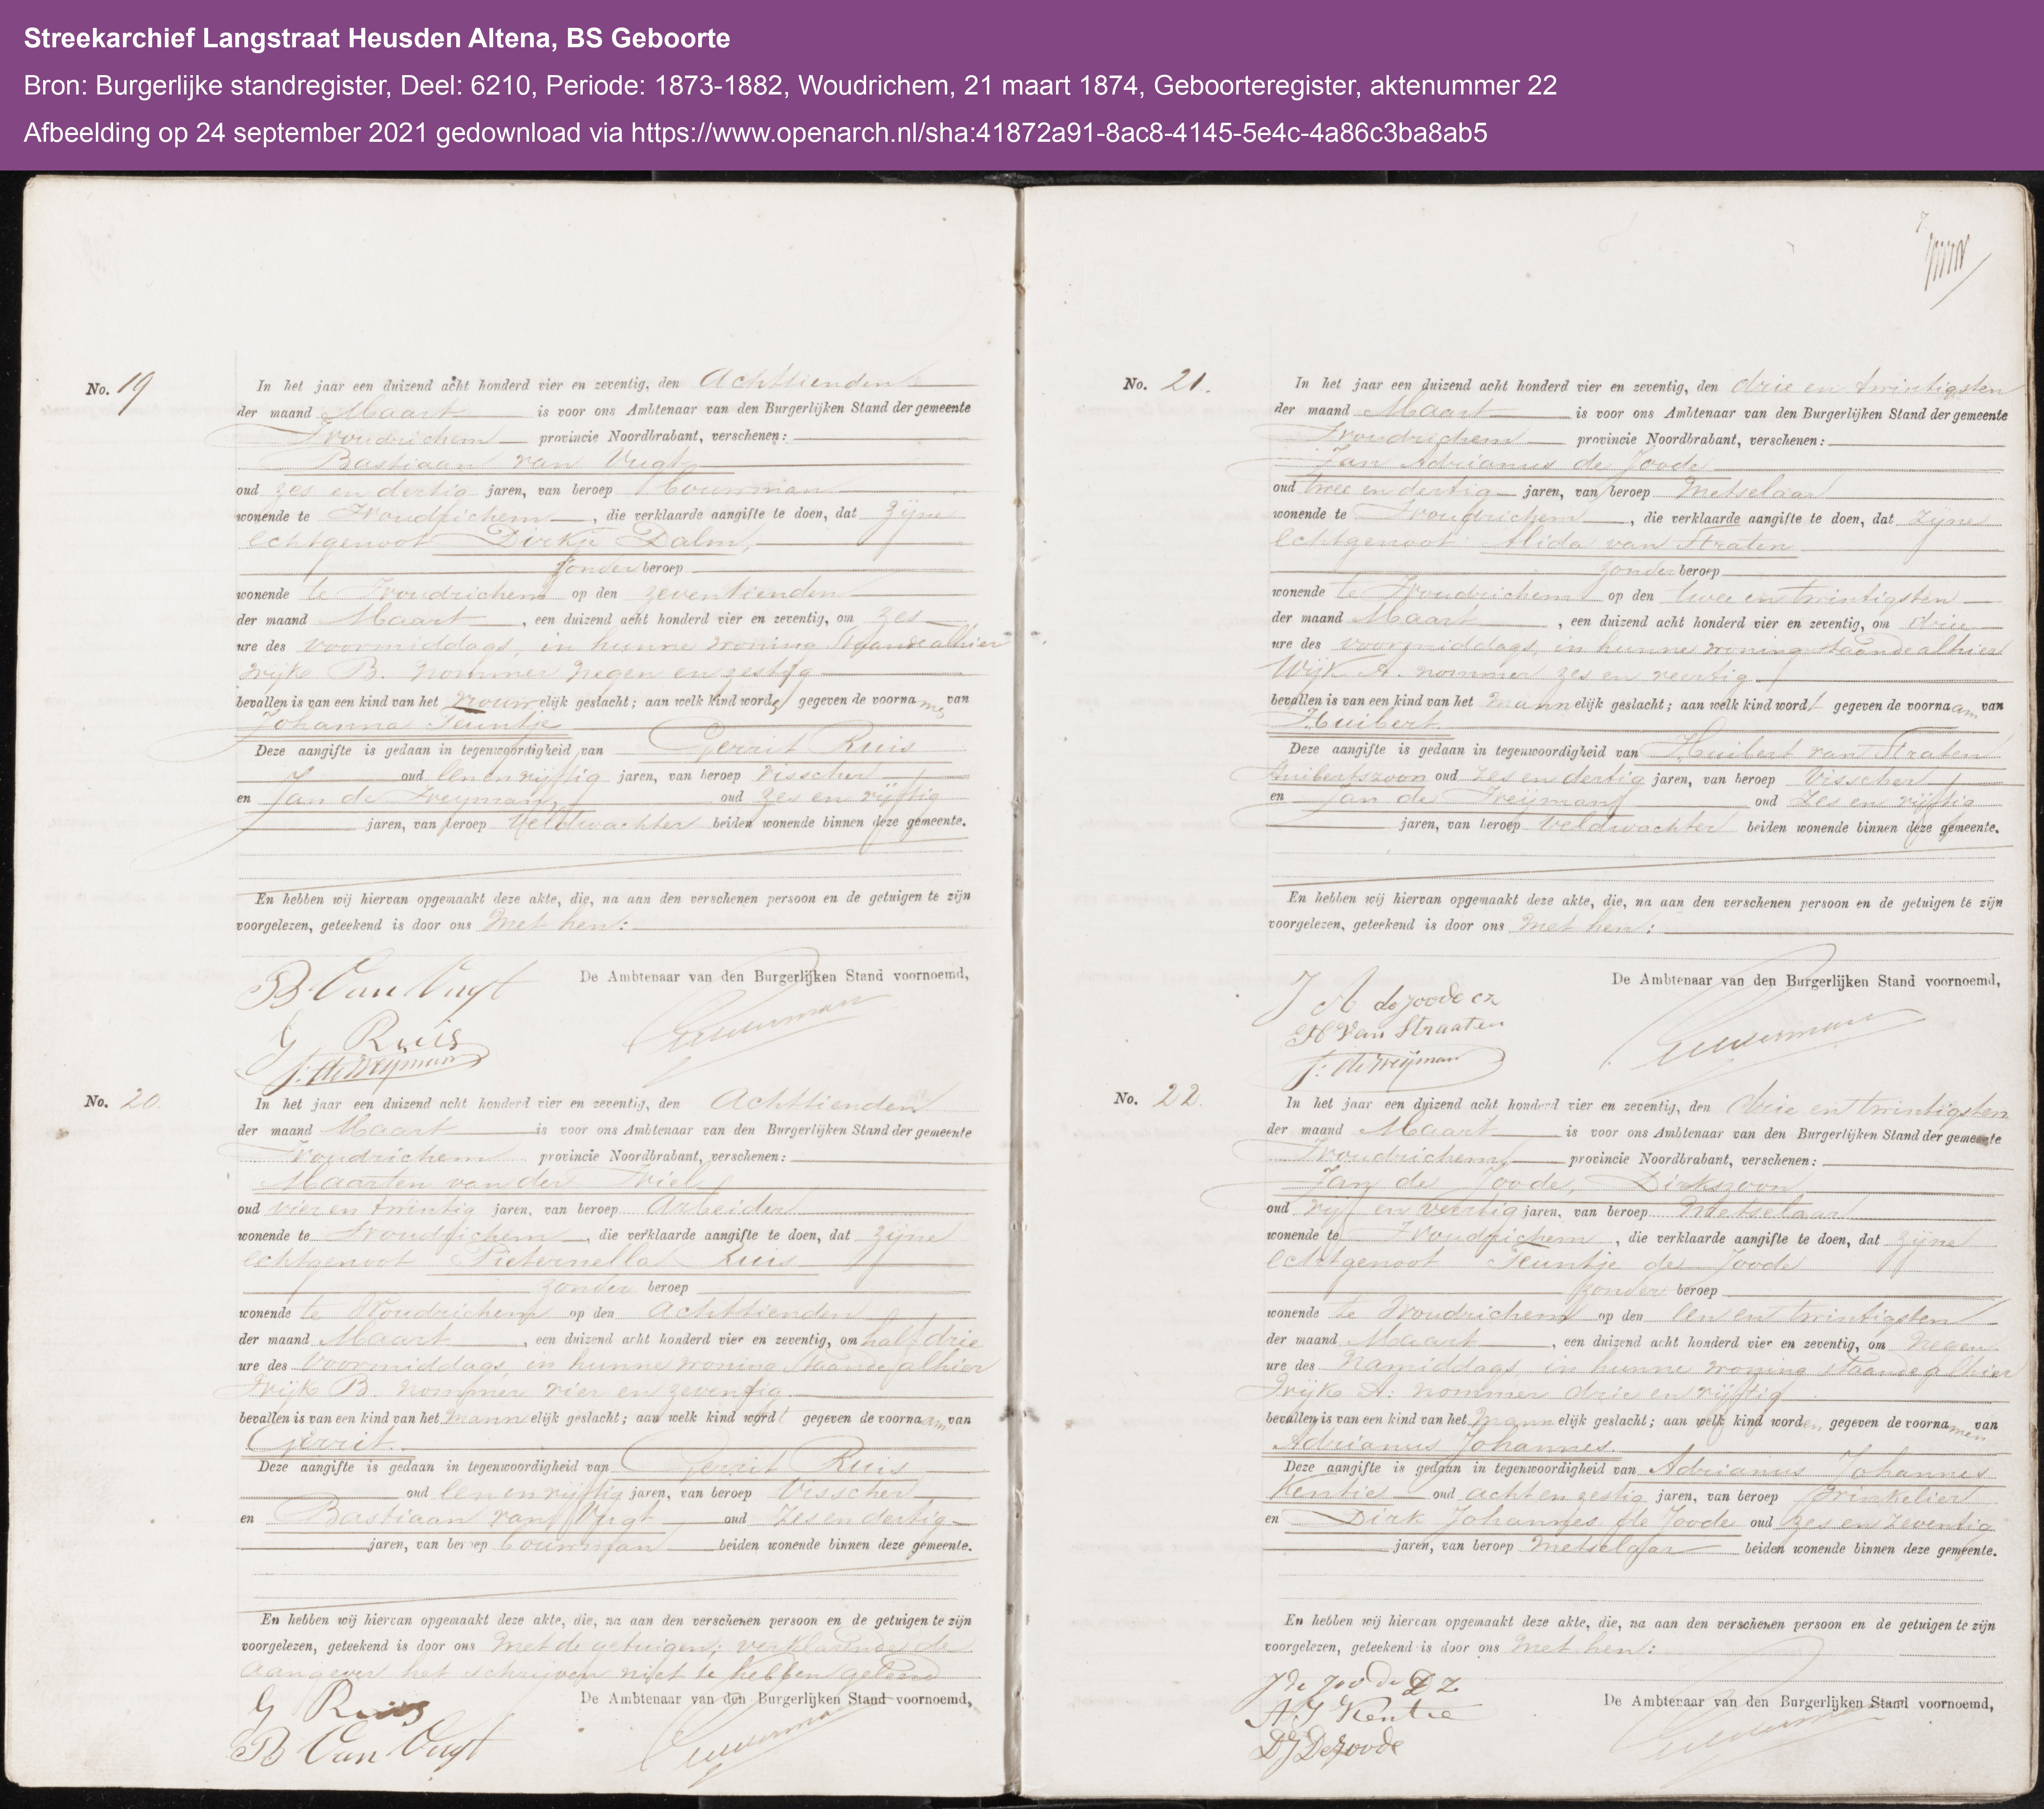 Streekarchief Langstraat Heusden Altena, BS Geboorte
Bron: Burgerlijke standregister, Deel: 6210, Periode: 1873-1882, Woudrichem, 21 maart 1874, Geboorteregister, aktenummer 22
Afbeelding op 24 september 2021 gedownload via https://www.openarch.nl/sha:41872a91-8ac8-4145-5e4c-4a86c3ba8ab5
No. 19
In het jaar een duizend acht honderd vier en zeventig, den Achttienden
der maand Maart is voor ons Ambtenaar van den Burgerlijken Stand der gemeente
Woudrichem provincie Noordbrabant, verschenen:
Bastiaan van Vugt
oud zes en dertig jaren, van beroep Bouwman
wonende te Woudrichem, die verklaarde aangifte te doen, dat zijne
echtgenoot Dirkje Dalm,
zonder beroep
wonende te Woudrichem op den zeventienden
der maand Maart, een duizend acht honderd vier en zeventig, om zes
ure des voormiddags, in hunne woning staande alhier
wijk B. nommer negen en zestig
bevallen is van een kind van het vrouwelijk geslacht; aan welk kind worde gegeven de voornames van
Johanna Teuntje
Deze aangifte is gedaan in tegenwoordigheid van Gerrit Ruis
oud een en vijftig jaren, van beroep visscher
en Jan de Weyman, oud zes en vijftig
jaren, van beroep Veldwachter beiden wonende binnen deze gemeente.
En hebben wij hiervan opgemaakt deze akte, die, na aan den verschenen persoon en de getuigen te zijn
voorgelezen, geteekend is door ons met hen:
De Ambtenaar van den Burgerlijken Stand voornoemd,
B Van Vugt
G Ruis
J: de Weyman
No. 20.
In het jaar een duizend acht honderd vier en zeventig, den Achttienden
der maand Maart is voor ons Ambtenaar van den Burgerlijken Stand der gemeente
Woudrichem provincie Noordbrabant, verschenen:
Maarten van der Wiel
oud vier en twintig jaren, van beroep Arbeider
wonende te Woudrichem, die verklaarde aangifte te doen, dat zijne
echtgenoot Pieternella Ruis
zonder beroep
wonende te Woudrichem op den Achttienden
der maand Maart, een duizend acht honderd vier en zeventig, om half drie
ure des Voormiddags, in hunne woning staande alhier
Wijk B. nommer vier en zeventig
bevallen is van een kind van het mannelijk geslacht; aan welk kind wordt gegeven de voornaam van
Gerrit.
Deze aangifte is gedaan in tegenwoordigheid van Gerrit Ruis
oud een en vijftig jaren, van beroep Visscher
en Bastiaan van Vugt oud zes en dertig
jaren, van beroep Bouwman beiden wonende binnen deze gemeente.
En hebben wij hiervan opgemaakt deze akte, die, na aan den verschenen persoon en de getuigen te zijn
voorgelezen, geteekend is door ons met de getuigen; verklarende de
aangever het schrijven niet te hebben geleerd
De Ambtenaar van den Burgerlijken Stand voornoemd,
G Ruis
B Van Vugt
7
No. 21.
In het jaar een duizend acht honderd vier en zeventig, den drie en twintigsten
der maand Maart is voor ons Ambtenaar van den Burgerlijken Stand der gemeente
Woudrichem provincie Noordbrabant, verschenen:
Jan Adrianus de Joode
oud twee en dertig jaren, van beroep Metselaar
wonende te Woudrichem, die verklaarde aangifte te doen, dat zijne
echtgenoot Alida van Straten
zonder beroep
wonende te Woudrichem op den twee en twintigsten
der maand Maart, een duizend acht honderd vier en zeventig, om drie
ure des voormiddags, in hunne woning staande alhier
Wijk A. nommer zes en veertig
bevallen is van een kind van het mannelijk geslacht; aan welk kind wordt gegeven de voornaam van
Huibert
Deze aangifte is gedaan in tegenwoordigheid van Huibert van Straten
Huibertszoon oud zes en dertig jaren, van beroep Visscher
en Jan de Weijman oud zes en vijftig
jaren, van beroep Veldwachter beiden wonende binnen deze gemeente.
En hebben wij hiervan opgemaakt deze akte, die, na aan den verschenen persoon en de getuigen te zijn
voorgelezen, geteekend is door ons met hen:
De Ambtenaar van den Burgerlijken Stand voornoemd,
J A de joode cz
H Van Straaten
J: de Weijman
No. 22.
In het jaar een duizend acht honderd vier en zeventig, den drie en twintigsten
der maand Maart is voor ons Ambtenaar van den Burgerlijken Stand der gemeente
Woudrichem, provincie Noordbrabant, verschenen:
Jan de Joode, Dirkszoon
oud vijf en veertig jaren, van beroep Metselaar
wonende te Woudrichem, die verklaarde aangifte te doen, dat zijne
echtgenoot Teuntje de Joode
zonder beroep
wonende te Woudrichem op den een en twintigsten
der maand Maart, een duizend acht honderd vier en zeventig, om negen
ure des Namiddags, in hunne woning staande alhier
Wijk A: nommer drie en vijftig
bevallen is van een kind van het mannelijk geslacht; aan welk kind worden gegeven de voornamen van
Adrianus Johannes.
Deze aangifte is gedaan in tegenwoordigheid van Adrianus Johannes
Kentie oud acht en zestig jaren, van beroep Winkelier
en Dirk Johannes de Joode oud zes en zeventig
jaren, van beroep Metselaar beiden wonende binnen deze gemeente.
En hebben wij hiervan opgemaakt deze akte, die, na aan den verschenen persoon en de getuigen te zijn
voorgelezen, geteekend is door ons met hen:
De Ambtenaar van den Burgerlijken Stand voornoemd,
J de joode D Z
A J Kentie
D J De Joode